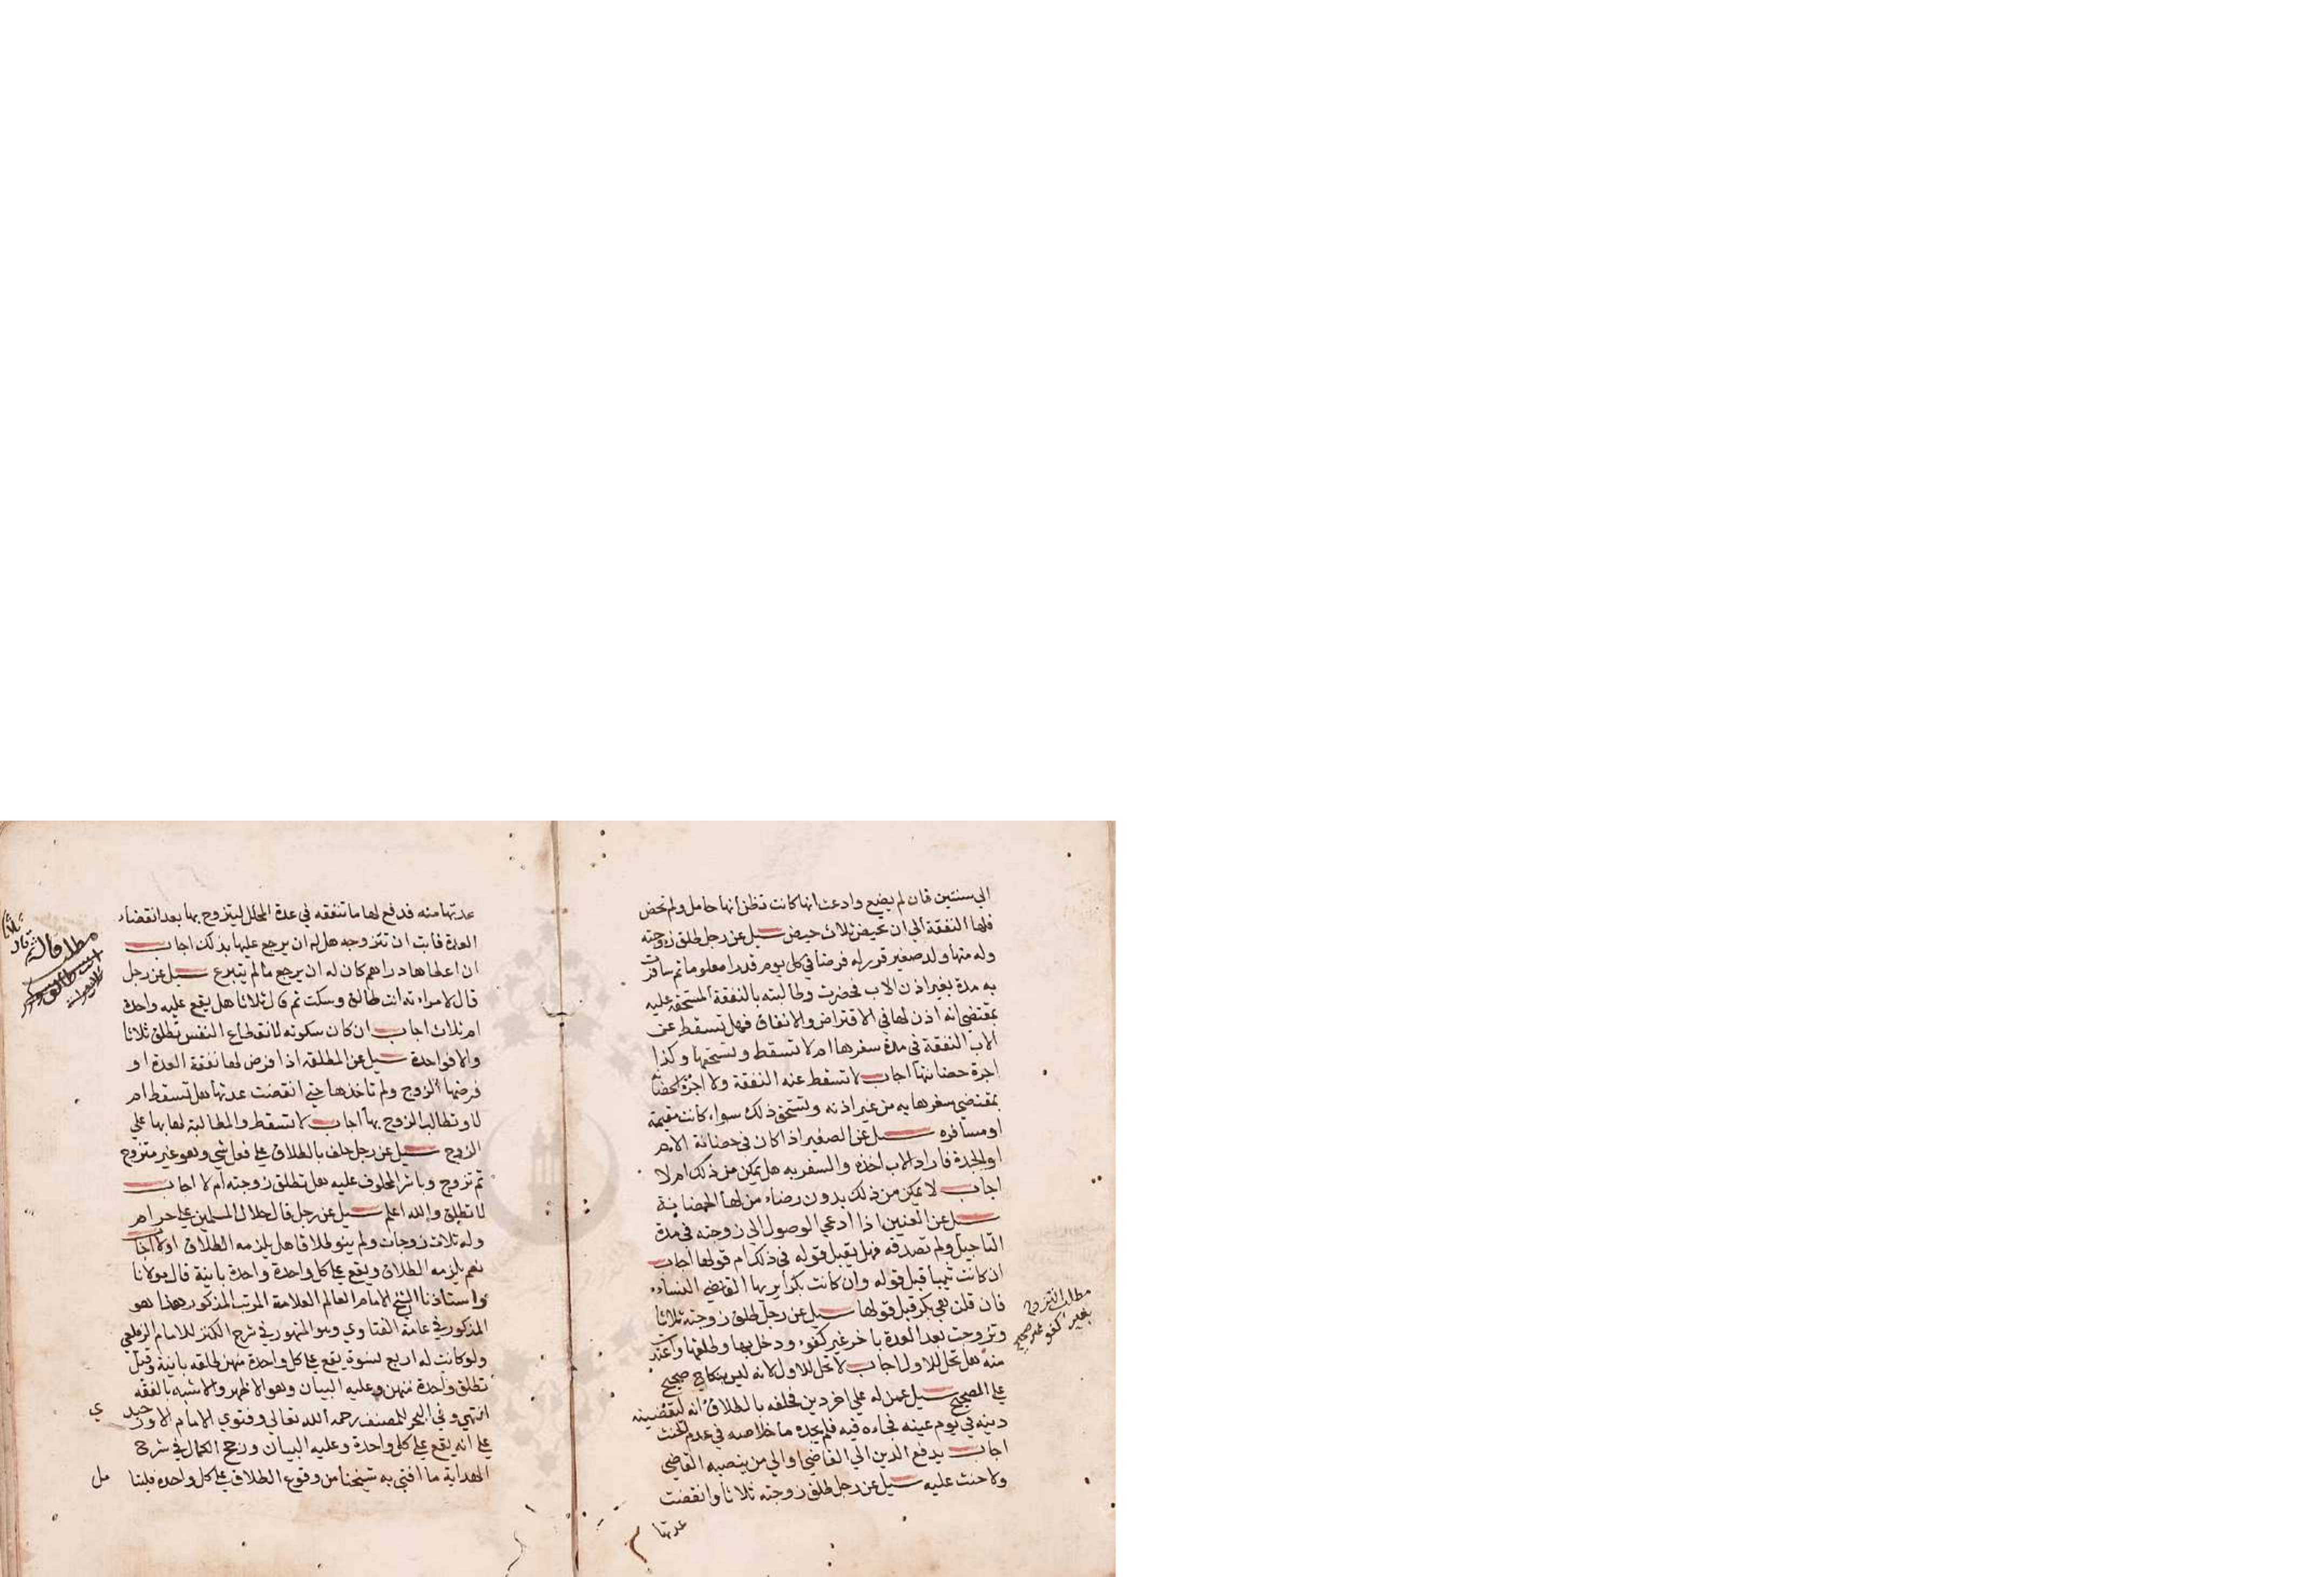 الي سنتين فان لم يضع وادعت انها كانت تظن انها حامل ولم تحض
فلها النفقة الي ان تحيض ثلاث حيض سيل عن رجل طلق زوجته
وله منها ولد صغير قرر له فرضا في كل يوم قدرا معلوما ثم سافرت
به مدة بغير اذن الاب فحضرت وطالبته بالنفقة المستحقة عليه
بمقتضي انه اذن لها في الاقتراض والانفاق فهل تسقط عن
الاب النفقة في مدة سفرها ام لا تسقط وتستحقها وكذا
اجرة حضانتها اجاب لا تسقط عنه النفقة ولا اجرة الحضانة
بمقتضي سفرها به من غير اذنه وتستحق ذلك سواء كانت مقيمة
او مسافره سيل عن الصغير اذا كان في حضانة الام
او الجدة فاراد الاب اخذه والسفر به هل يمكن من ذلك ام لا
اجاب لا يمكن من ذلك بدون رضاء من لها الحضانة
سيل عن العنين اذا ادعي الوصول الي زوجته في مدة
التاجيل ولم تصدقه فهل يقبل قوله في ذلك ام قولها اجاب
ان كانت ثيبا قبل قوله وان كانت بكرا يريها القاضي النساء
فان قلن هي بكر قبل قولها سيل عن رجل طلق زوجته ثلاثا
وتزوجت بعد العدة باخر غير كفوء ودخل بها وطلقها واعتدت
منه هل تحل للاول اجاب لا تحل للاول لانه ليس بنكاح صحيح
علي الصحيح سيل عمن له علي اخر دين فحلفه بالطلاق انه ليقضينه
دينه في يوم عينه فجاءه فيه فلم يجده ما خلاصه في عدم الحنث
اجاب يدفع الدين الي القاضي او الي من ينصبه القاضي
ولا حنث عليه سيل عن رجل طلق زوجته ثلاثا وانقضت
عدتها
مطلب التزوج
بغير كفو غير صحيح
عدتها منه فدفع لها ما تنفقه في عدة المحلل ليتزوج بها بعد انقضاء
العدة فابت ان تتزوجه هل له ان يرجع عليها بذلك اجاب
ان اعطاها دراهم كان له ان يرجع ما لم يتبرع سيل عن رجل
قال لامراته انت طالق وسكت ثم قال ثلاثا هل يقع عليه واحدة
ام ثلاث اجاب ان كان سكوته لانقطاع النفس تطلق ثلاثا
والا فواحدة سيل عن المطلقة اذا فرض لها نفقة العدة او
فرضها الزوج ولم تاخذها حتي انقضت عدتها هل تسقط ام
لا وتطالب الزوج بها اجاب لا تسقط والمطالبة لها بها علي
الزوج سيل عن رجل حلف بالطلاق علي فعل شي وهو غير متزوج
ثم تزوج وباشر المحلوف عليه هل تطلق زوجته ام لا اجاب
لا تطلق والله اعلم سيل عن رجل قال حلال المسلمين علي حرام
وله ثلاث زوجات ولم ينو طلاقا هل يلزمه الطلاق اولا اجاب
نعم يلزمه الطلاق ويقع علي كل واحدة واحدة باينة قال مولانا
واستاذنا الشيخ الامام العالم العلامة المرتب المذكور هذا هو
المذكور في عامة الفتاوي وهو المشهور في شرح الكنز للامام الزيلعي
ولو كانت له اربع نسوة يقع علي كل واحدة منهن طلقه باينة وقيل
تطلق واحدة منهن وعليه البيان وهو الاظهر والاشبه بالفقه
انتهي وفي البحر للمصنف رحمه الله تعالي وفتوي الامام الاوزجندي
علي انه يقع علي كل واحدة وعليه البيان ورجح الكمال في شرح
الهداية ما افتي به شيخنا من وقوع الطلاق علي كل واحده فليتامل
مطلب قال
انت طالق